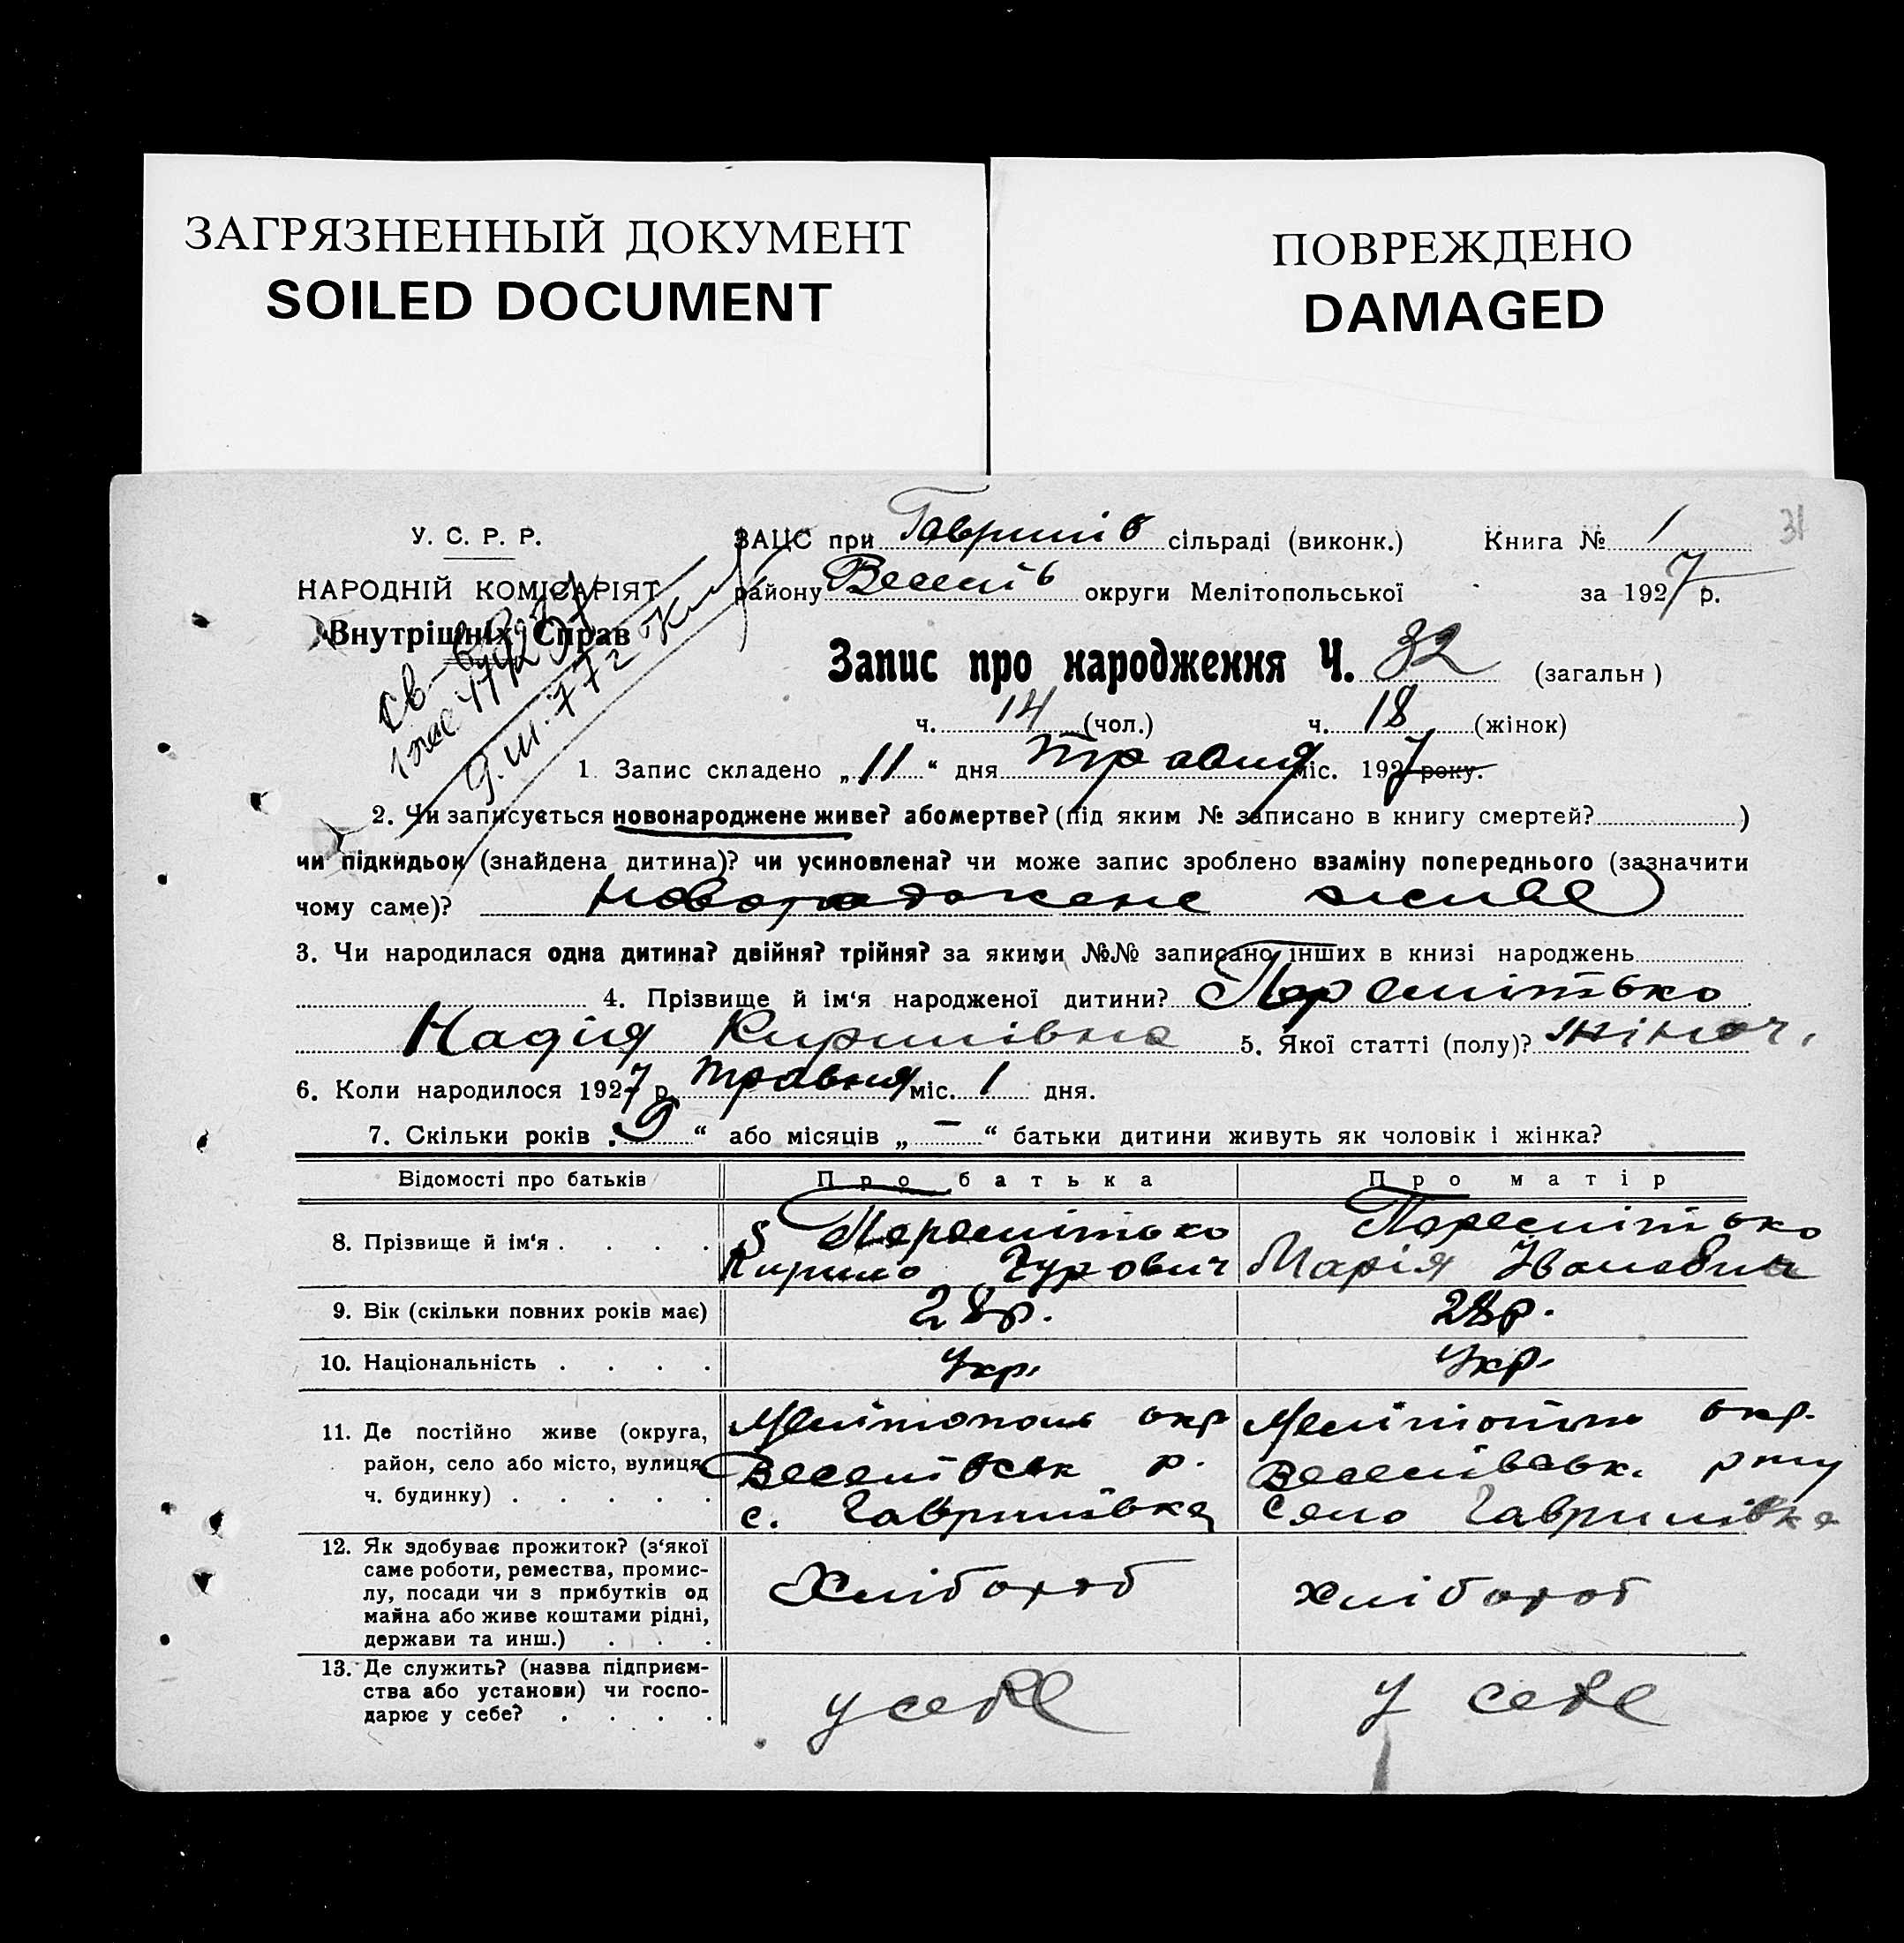 ЗАГРЯЗНЕННЫЙ ДОКУМЕНТ
SOILED DOCUMENT
ПОВРЕЖДЕНО
DAMAGED
31
У. С. Р. Р.
НАРОДНІЙ КОМІСАРІЯТ
Внутрішніх Справ
ЗАЦС при Гаврилів сільраді (виконк.) Книга № 1
району Веселів округи Мелітопольської за 1927 р.
Запис про народження Ч. 32 (загальн)
ч. 14 (чол.) ч. 18 (жінок)
9.III.77г
1. Запис складено „11“ дня травня міс. 1927 року.
2. Чи записується новонароджене живе? або мертве? (під яким № записано в книгу смертей? )
чи підкидьок (знайдена дитина)? чи усиновлена? чи може запис зроблено взаміну попереднього (зазначити
чому саме)? новороджене живе
3. Чи народилася одна дитина? двійня? трійня? за якими №№ записано інших в книзі народжень
4. Прізвище й ім‘я народженої дитини? Перемітько
Надія Кирилівна 5. Якої статті (полу)? жіноч.
6. Коли народилося 1927 р. травня міс. 1 дня.
7. Скільки років „9“ або місяців „—“ батьки дитини живуть як чоловік і жінка?
Відомості про батьків Про батька Про матір
8. Прізвище й ім‘я . . . . Перемітько
Кирило Гурович
Перемітько
Марія Іванівна
9. Вік (скільки повних років має) 28р. 28р.
10. Національність . . . . Укр. Укр.
11. Де постійно живе (округа,
район, село або місто, вулиця
ч. будинку) . . . . .
Мелітополь окр
Веселівськ р.
с. Гаврилівка
Мелітополь окр.
Веселівськ. р-ну
село Гаврилівка
12. Як здобуває прожиток? (з‘якої
саме роботи, ремества, промис-
лу, посади чи з прибутків од
майна або живе коштами рідні,
держави та инш.) . . .
Хлібороб
хлібороб
13. Де служить? (назва підприєм-
ства або установи) чи госпо-
дарює у себе? . . . .
у себе
у себе